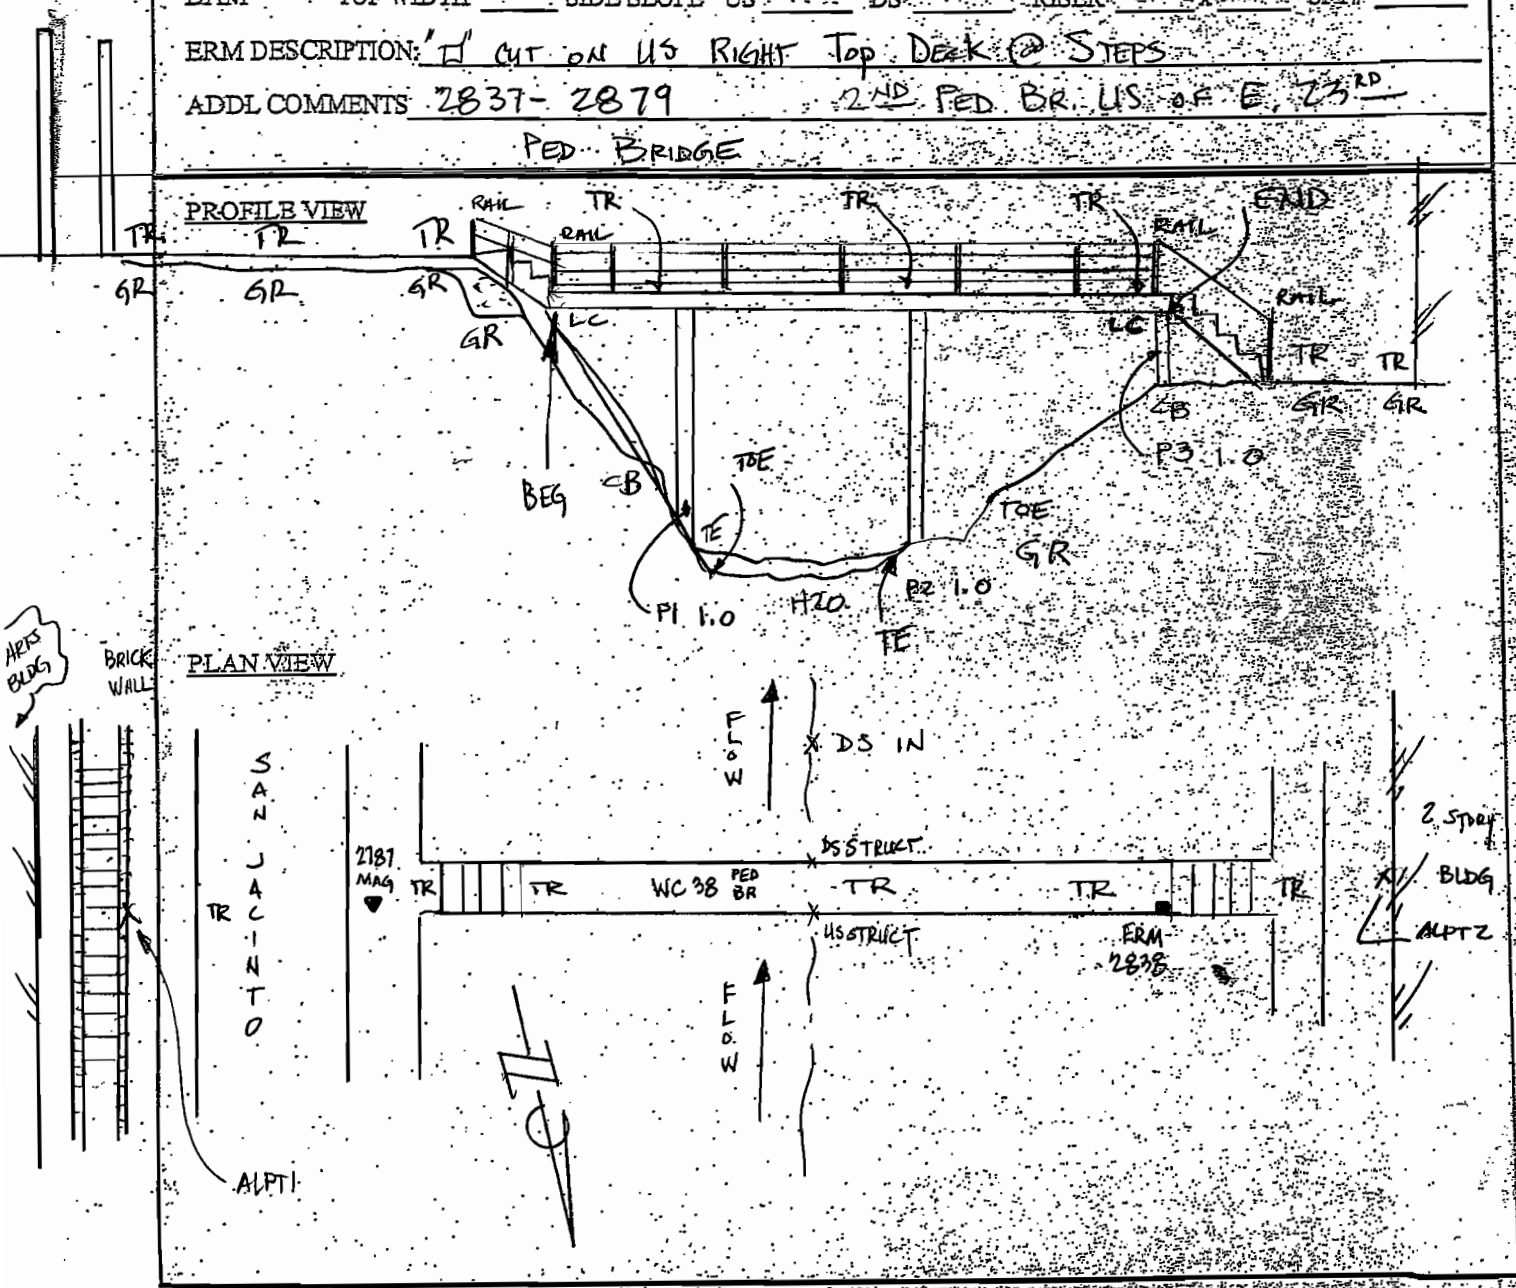 TOP WIDTH SIDE SLOPE US DS RISER
ERM DESCRIPTION: "□" CUT ON US RIGHT TOP DECK @ STEPS
ADDL COMMENTS 2837-2879 2ND PED BR. US OF E. 23RD
PED BRIDGE
PROFILE VIEW
RAIL TR TR TR END
TR TR TR RAIL RAIL
GR GR GR RAIL
GR LC LC TR TR
CB GR GR
BEG CB TOE P3 1.0
TOE
TE GR
P1 1.0 H2O P2 1.0
TE
ARTS
BLDG
BRICK
WALL
PLAN VIEW
FLOW
DS IN
SAN JACINTO
2 STORY
BLDG
DS STRUCT
2787
MAG
TR TR TR WC 38 PED
BR TR TR TR
ALPT2
US STRUCT ERM
2838
FLOW
N
ALPT1